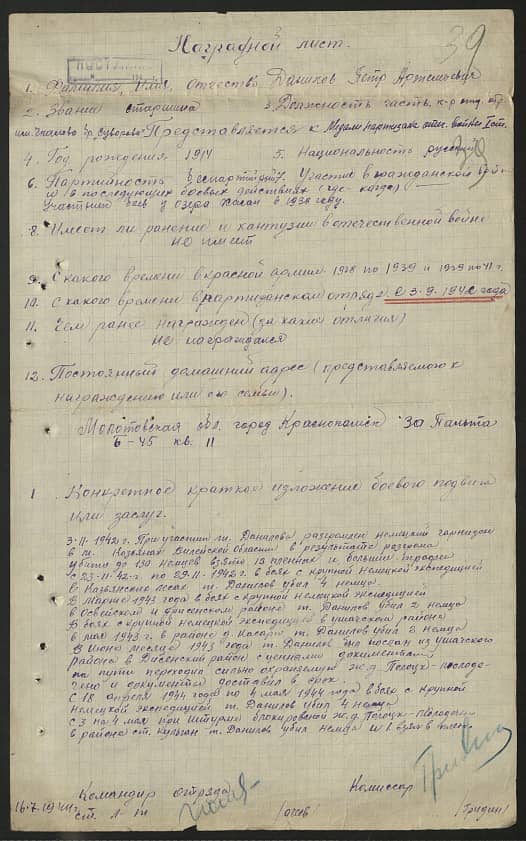 39
Наградной лист.
1. Фамилия, Имя, Отчество Данилов Петр Артемьевич
2. Звание старшина 3. Должность часть. к-р отд. отр.
им. Чкалова бр. Суворова Представляется к Медали партизана отеч. войны I ст.
4. Год рождения 1914 5. Национальность русский
6. Партийность беспартийный 7. Участие в гражданской войне
и в последующих боевых действиях (где когда)
Участник боев у озера Хасан в 1938 году.
8. Имеет ли ранение и кантузии в отечественной войне
не имеет
9. С какого времени в красной армии 1938 по 1939 и 1939 по 41 г.
10. С какого времени в партизанском отряде с 3.9.1942 года
11. Чем ранее награжден (за какие отличия)
не награждался
12. Постоянный домашний адрес (представляемого к
награждению или его семьи).
Молотовская обл. город Краснокамск
6-45 кв. 11
1 Конкретное краткое изложение боевого подвига
или заслуг.
3.11.1942 г. При участии т. Данилова разгромлен немецкий гарнизон
в м. Казьяны Вилейской области в результате разгрома
убито до 130 немцев взято 13 пленных и большие трофеи
с 23.11.42 г. по 29.11.1942 г. в боях с крупной немецкой экспедицией
в Казьянских лесах т. Данилов убил 4 немца.
В марте 1943 года в боях с крупной немецкой экспедицией
в Освейском и Дрисенском районе т. Данилов убил 2 немца
В боях с крупной немецкой экспедицией в ушачском районе
в мае 1943 г. в районе д. т. Данилов убил 3 немца
В июне месяце 1943 года т. Данилов был послан из ушачского
района в Дисенский район с ценными документами
на пути перехода сильно охраняемой ж.д. Полоцк-Молодечено
и документы доставил в срок.
С 18 апреля 1944 года по 4 мая 1944 года в боях с крупной
немецкой экспедицией т. Данилов убил 4 немца
с 3 на 4 мая при штурме блокированой ж.д. Полоцк-Молодечно
в районе ст. т. Данилов убил немца и 1 взят в плен
Командир отряда Комиссар
16.7.1944 г. ст. л-т /Гридин/